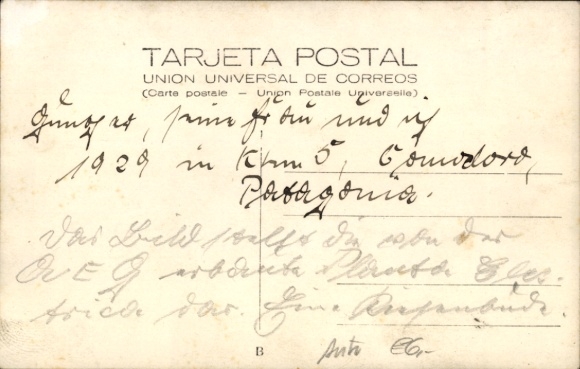 TARJETA POSTAL
UNION UNIVERSAL DE CORREOS
(Carte postale — Union Postale Universelle)
seine Frau und ich
1929 in Klm 5, Comodoro,
Patagonia.
Das Bild stellt die von der
AEG erbaute Planta Elec-
trica dar. Eine Riesenbude.
B